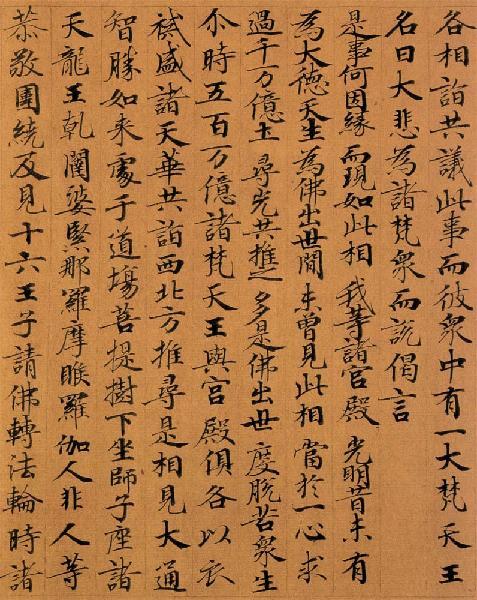 各相詣共議此事而彼衆中有一大梵天王
名曰大悲為諸梵衆而說偈言
是事何因緣 而現如此相 我等諸宮殿 光明昔未有
為大德天生 為佛出世間 未曾見此相 當於一心求
過千万億土 尋光共推之 多是佛出世 度脫苦衆生
尒時五百万億諸梵天王與宮殿俱各以衣
祴盛諸天華共詣西北方推尋是相見大通
智勝如来處于道場菩提樹下坐師子座諸
天龍王乾闥婆緊那羅摩睺羅伽人非人等
恭敬圍繞及見十六王子請佛轉法輪時諸